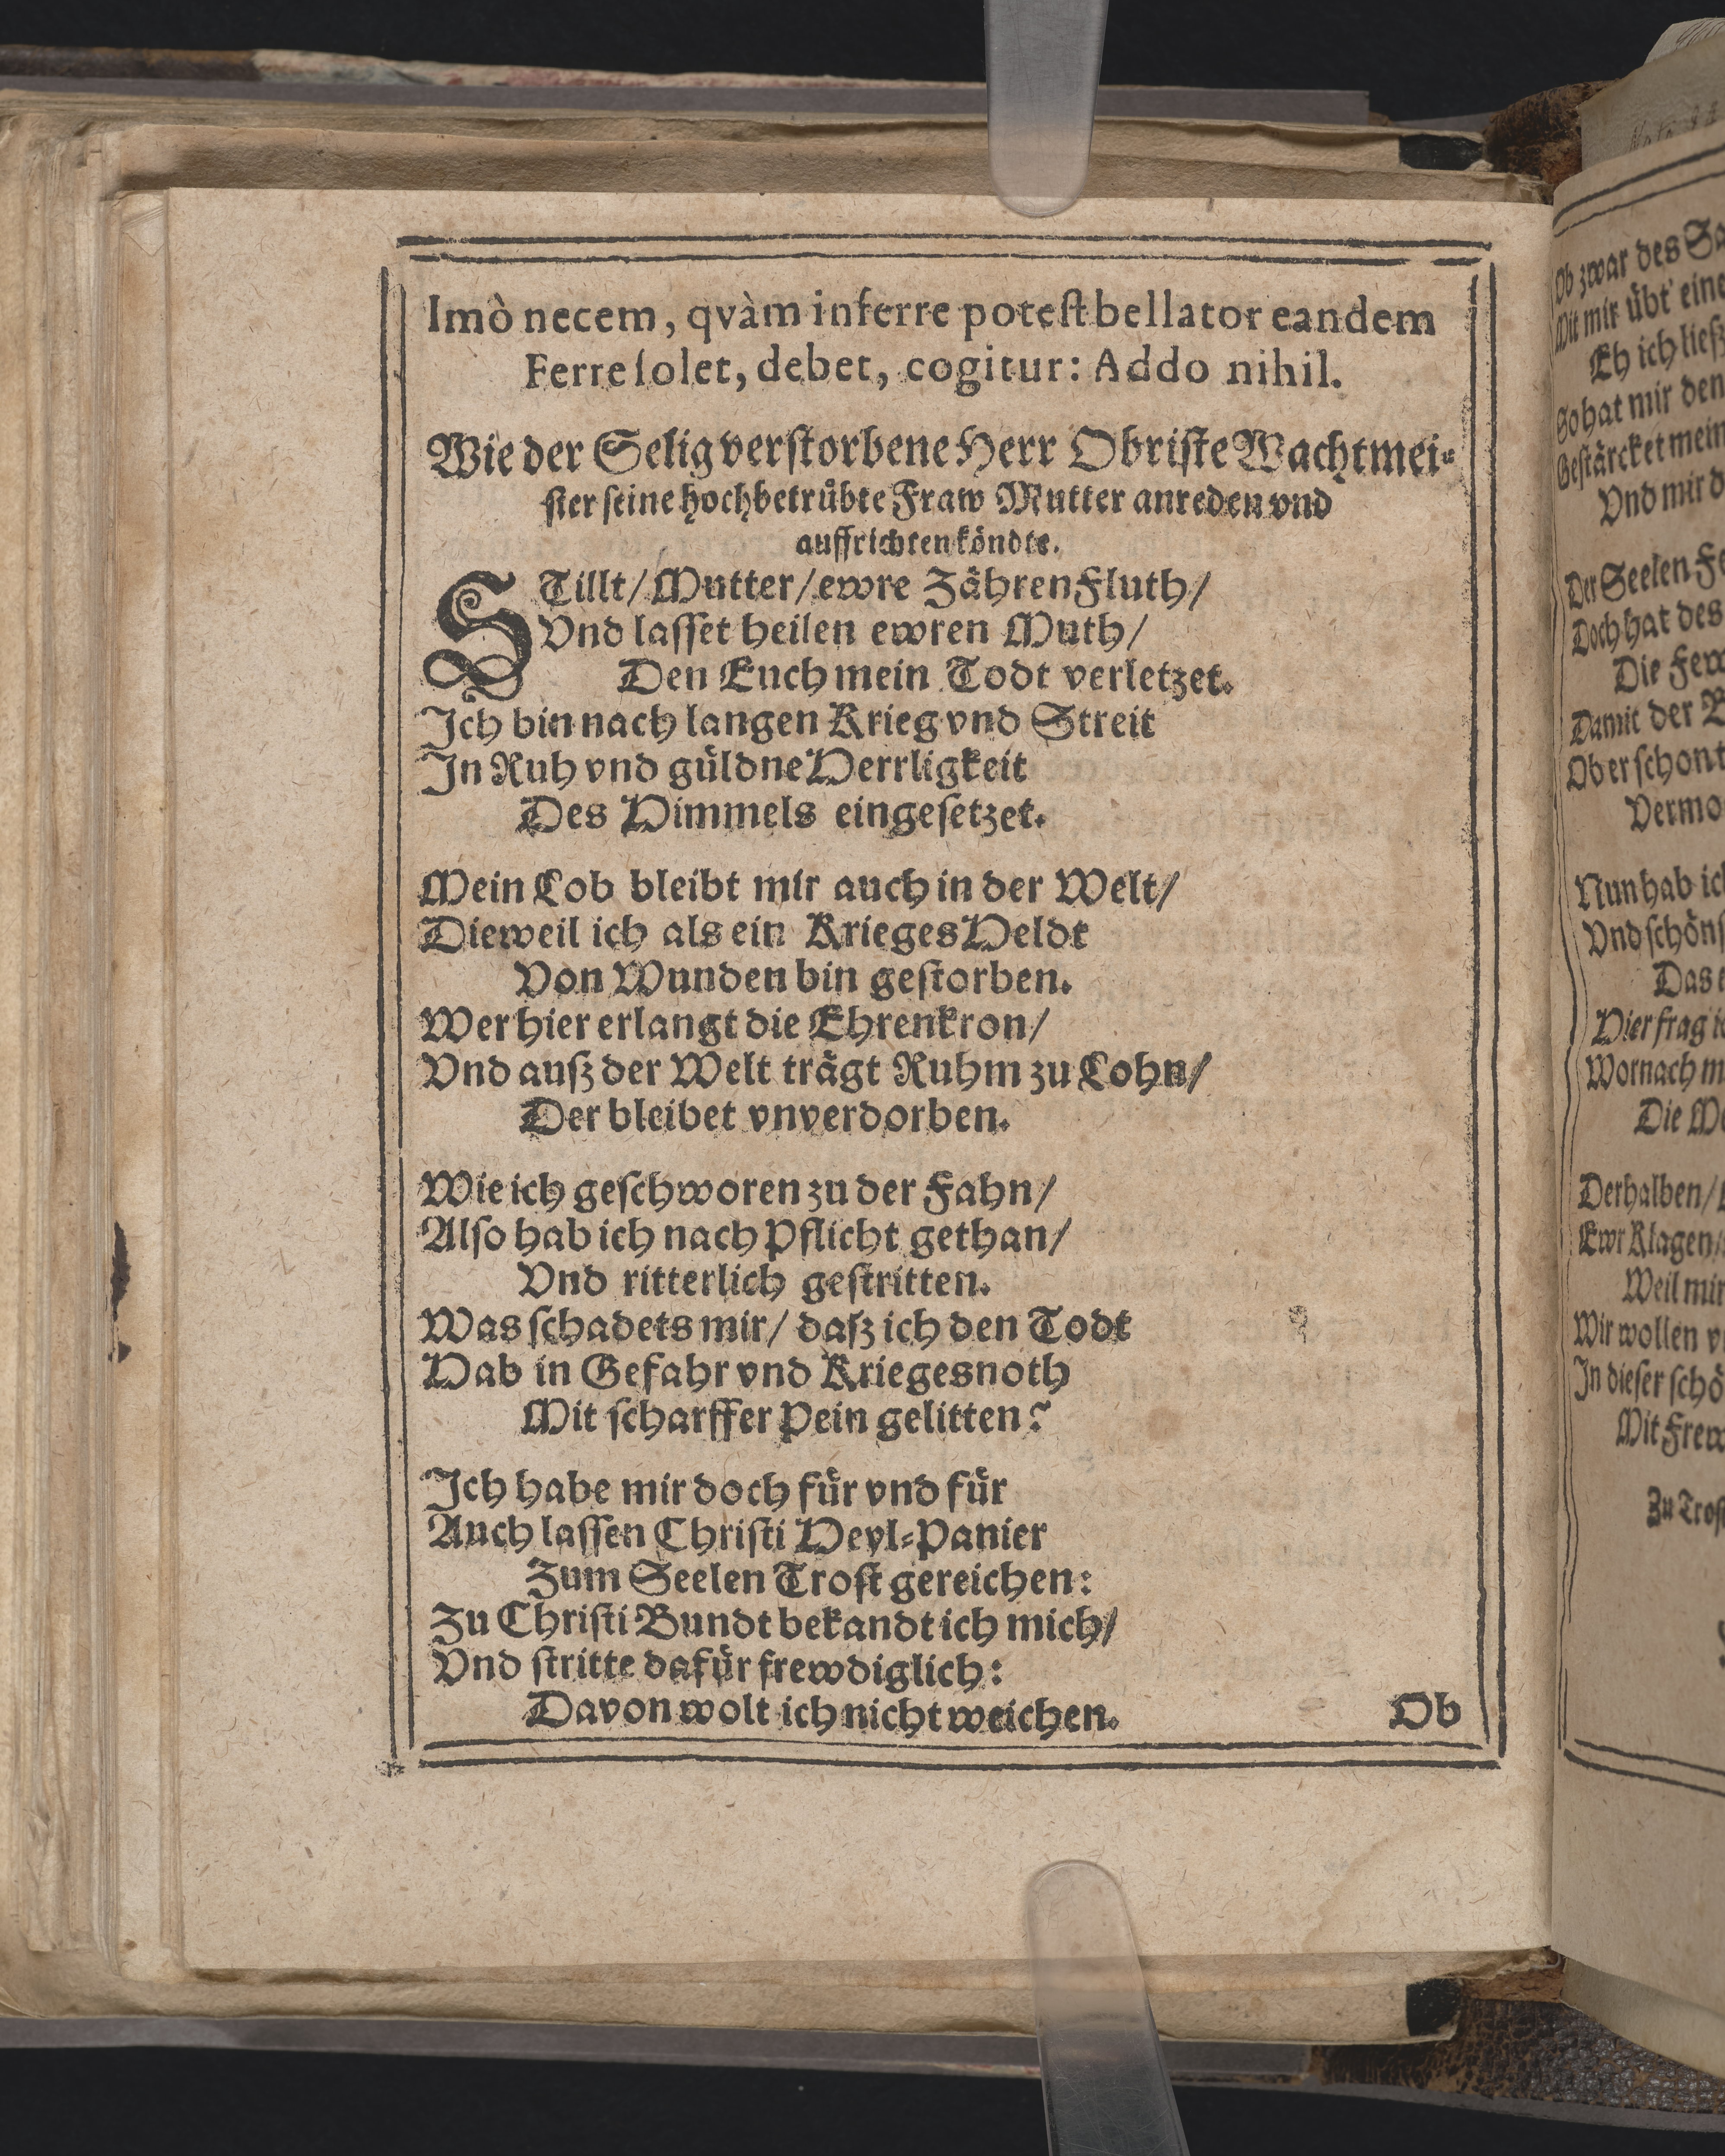 Imò necem, qvàm inferre potest bellator eandem
Ferre solet, debet, cogitur: Addo nihil.
Wie der Selig verstorbene Herr Obriste Wachtmei-
ster seine hochbetrübte Fraw Mutter anreden vnd
auffrichten köndte.
STillt/ Mutter/ ewre Zähren Fluth/
Vnd lasset heilen ewren Muth/
Den Euch mein Todt verletzet.
Ich bin nach langen Krieg vnd Streit
In Ruh vnd güldne Herrligkeit
Des Himmels eingesetzet.
Mein Lob bleibt mir auch in der Welt/
Dieweil ich als ein Krieges Heldt
Von Wunden bin gestorben.
Wer hier erlangt die Ehrenkron/
Vnd auß der Welt trägt Ruhm zu Lohn/
Der bleibet vnverdorben.
Wie ich geschworen zu der Fahn/
Also hab ich nach Pflicht gethan/
Vnd ritterlich gestritten.
Was schadets mir/ daß ich den Todt
Hab in Gefahr vnd Kriegesnoth
Mit scharffer Pein gelitten?
Ich habe mir doch für vnd für
Auch lassen Christi Heyl-Panier
Zum Seelen Trost gereichen:
Zu Christi Bundt bekandt ich mich/
Vnd stritte dafür frewdiglich:
Davon wolt ich nicht weichen.
Ob
Ob zwar des
Mit mir übt eine
Eh ich ließ
So hat mir den
Gestärcket mein
Vnd mir
Der Seelen
Doch hat des
Die
Damit der
Ob er schon
Nun hab
Vnd
Das
Hier frag
Wornach
Die
Derhalben/
Ewr Klagen/
Weil mir
Wir wollen
In dieser
Mit
Zu